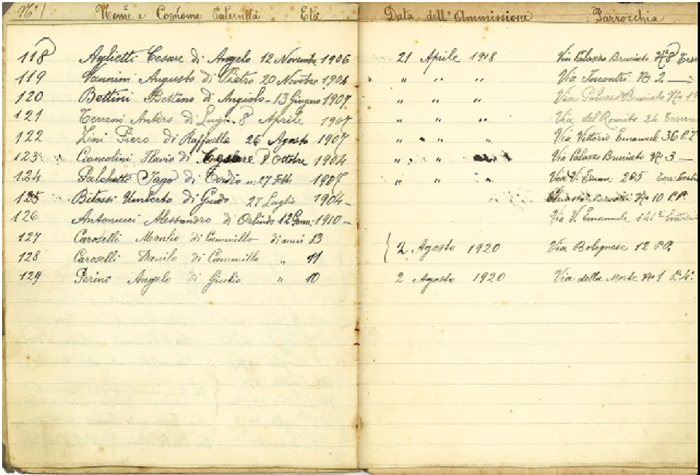 N° Nome e Cognome Paternità Età Data dell'Ammissione Parrocchia
118 Aglietti Cesare di Angelo 12 Novembre 1906 21 Aprile 1918 Via Palazzo Bruciato N° 8
119 Vannini Augusto di Pietro 20 Novbre 1906 " " " Via Incontri N° 2 —
120 Bettini Bettino di Angiolo - 13 Giugno 1907 " " " Via Palazzo Bruciato N°
121 Antero di Luigi 8 Aprile 1907 " " " Via del Romito 26
122 Zini Piero di Raffaello 26 Agosto 1907 " " " Via Vittorio Emanuel 36 P.
123 Flavio di Cesare 8 Ottobre 1904 " " " Via Palazzo Bruciato N° 3 —
124 di 27 1908 " " " Via V. Eman. 285
125 Bitossi Umberto di Guido 27 Luglio 1904 — N° 10 P.P.
126 Antonucci Alessandro di Oslindo 12 Genn. 1910 — Via V. Emanuele
127 Caroselli Manlio di Cammillo di anni 13
128 Caroselli Danilo di Cammillo " 11 2 Agosto 1920 Via Bolognese 12 P.P.
129 Perino Angelo di Giulio " 10 2 Agosto 1920 Via della Morte N° 1 P. 4°